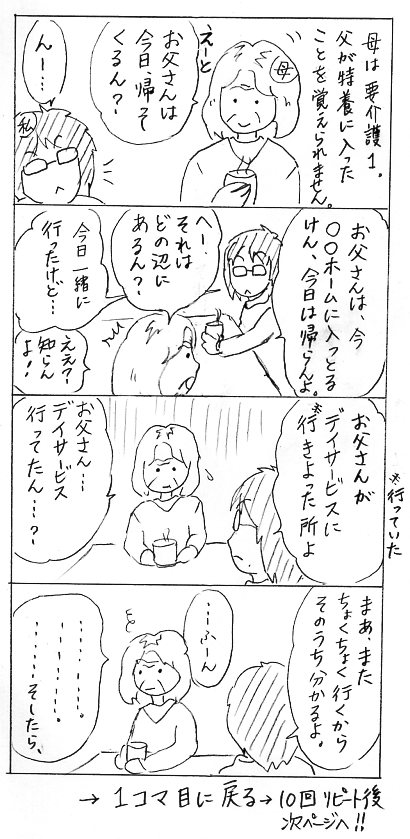 母は要介護1。
父が特養に入った
ことを覚えられません。
母
えーと
お父さんは
今日、帰って
くるん?
んー…
私
お父さんは、今
○○ホームに入っとる
けん、今日は帰らんよ。
へー、
それは
どの辺に
あるん?
今日一緒に
行ったけど…
ええ?
知らん
よ!
お父さんが
デイサービスに
※行きよった所よ
※行っていた
お父さん…
デイサービス
行ってたん…?
まあ、また
ちょくちょく行くから
そのうち分かるよ。
…ふーん
………。
………。
……そしたら、
→1コマ目に戻る→10回リピート後
次ページへ!!